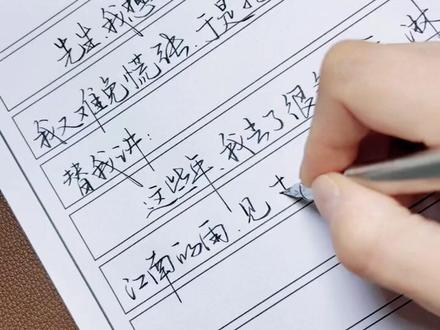 先生,我想
我又难免慌张,于是
替我讲:
这些年,我去了很
江南的雨,见